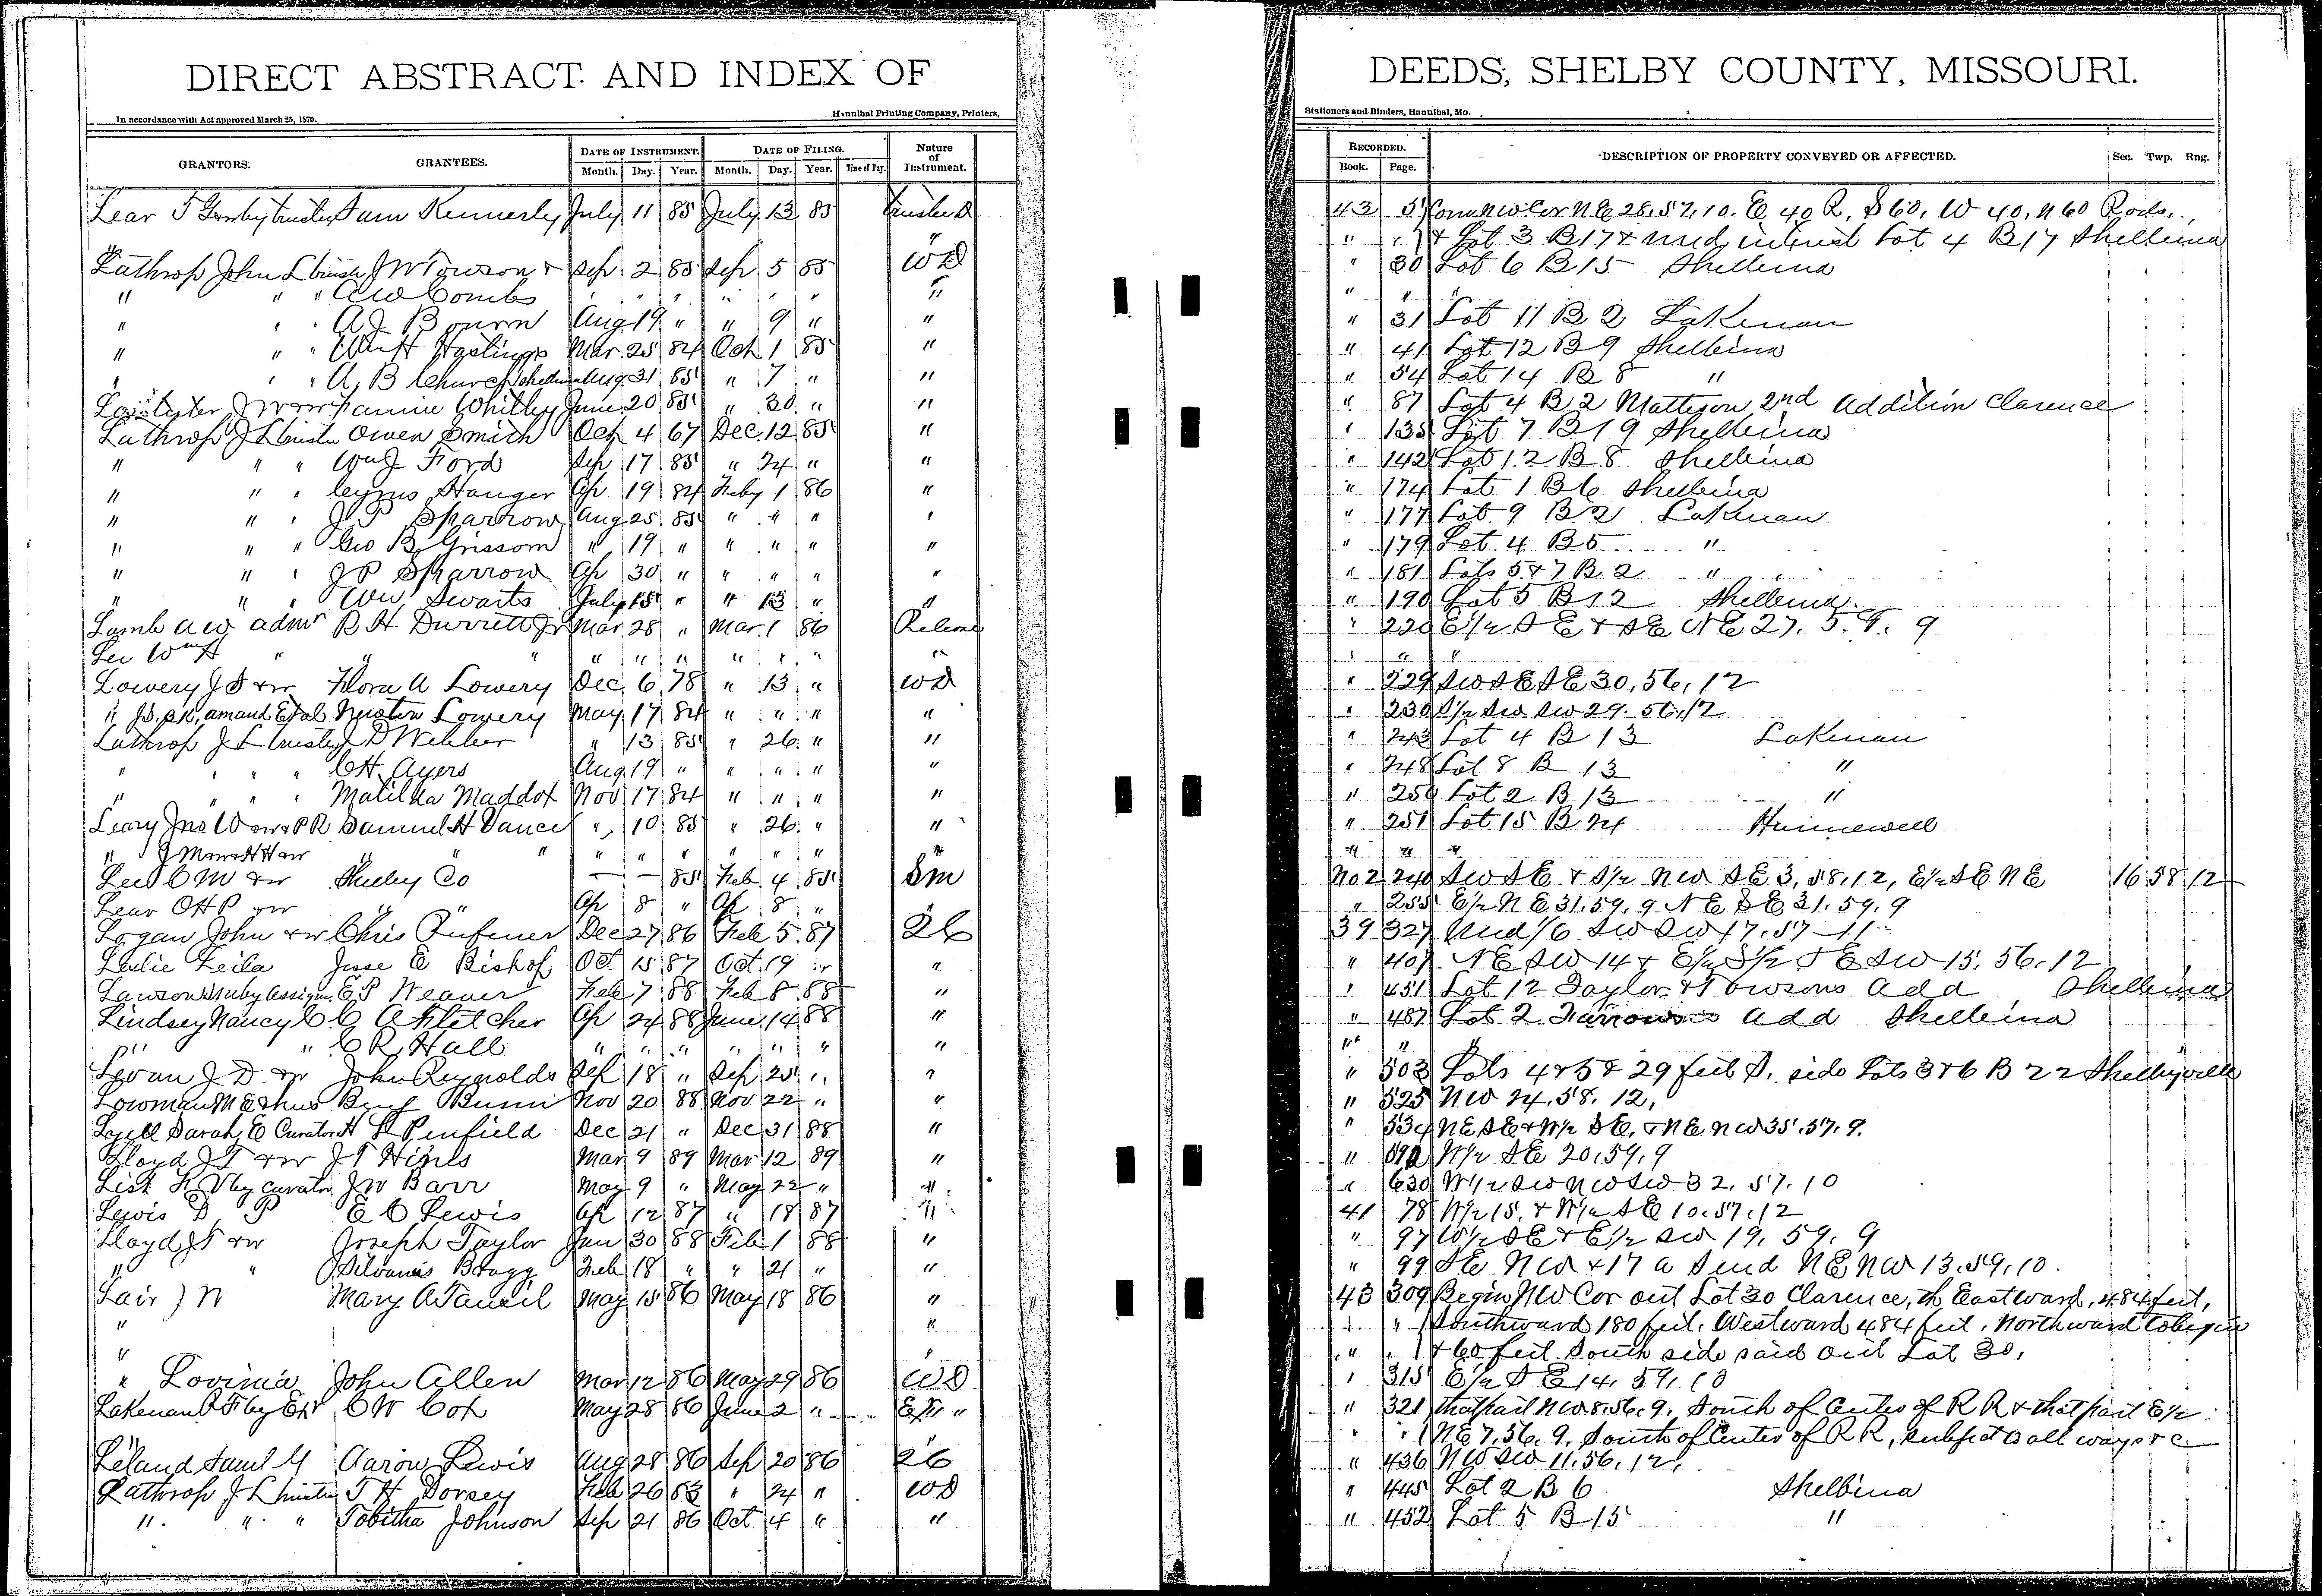 DIRECT ABSTRACT AND INDEX OF
DEEDS, SHELBY COUNTY, MISSOURI.
In accordance with Act approved March 25, 1870.
Hannibal Printing Company, Printers,
Stationers and Binders, Hannibal, Mo.
GRANTORS. GRANTEES. DATE OF INSTRUMENT. Month. Day. Year. DATE OF FILING. Month. Day. Year. Time of Day. Nature of Instrument.
RECORDED. Book. Page. DESCRIPTION OF PROPERTY CONVEYED OR AFFECTED. Sec. Twp. Rng.
Lear T Gentry trustee Sam Kennerly July 11 85 July 13 85 trustee D 43 5 Com NW Cor NE 28, 57, 10. E 40 R, S 60, W 40, N 60 Rods,
" " " " & Lot 3 B 17 & und interest Lot 4 B 17 Shelbina
Lathrop John L trustee J W Towson & Sep 2 85 Sep 5 85 WD " 30 Lot 6 B 15 Shelbina
" " " A W Combs " " " " " " " " " "
" " " A J Bourn Aug 19 " " 9 " " " 31 Lot 11 B 2 Lakenan
" " " Wm H Hastings Mar 25 84 Oct 1 85 " " 41 Lot 12 B 9 Shelbina
" " " A, B Church Shelbina Aug 31 85 " 7 " " " 54 Lot 14 B 8 "
J W & w Fannie Whitley June 20 85 " 30 " " " 87 Lot 4 B 2 Matteson 2nd Addition Clarence
Lathrop J L trustee Owen Smith Oct 4 67 Dec 12 85 " " 135 Lot 7 B 19 Shelbina
" " " Wm J Ford Sep 17 85 " 24 " " " 142 Lot 12 B 8 Shelbina
" " " Cyrus Hanger Ap 19 84 Feby 1 86 " " 174 Lot 1 B 6 Shelbina
" " " J P Sparrow Aug 25 85 " " " " " 177 Lot 9 B 2 Lakenan
" " " Geo B Grissom " 19 " " " " " " 179 Lot 4 B 5 "
" " " J P Sparrow Ap 30 " " " " " " 181 Lots 5 & 7 B 2 "
" " " Wm Swarts July 15 " " 13 " " " 190 Lot 5 B 12 Shelbina
Lamb A W admr R H Durrett Jr Mar 28 " Mar 1 86 Release " 220 E½ SE & SE NE 27. 57. 9
Lee Wm H " " " " " " " " " " " " "
Lowery J S & w Flora A Lowery Dec 6 78 " 13 " WD " 229 SW SE SE 30, 56, 12
" Newton Lowery May 17 84 " " " " " 230 S½ SW SW 29. 56, 12
Lathrop J L trustee J D Webber " 13 85 " 26 " " " 243 Lot 4 B 13 Lakenan
" " " " C H Ayers Aug 19 " " " " " " 248 Lot 8 B 13 "
" " " " Matilda Maddox Nov 17 84 " " " " " 250 Lot 2 B 13 "
Leary Jno W & w & P R Samuel H Vance " 10 85 " 26 " " " 251 Lot 15 B 24 Hunnewell
" " " " " " " " " " " " " "
Lee C M & w Shelby Co — — 85 Feb 4 85 Sm No 2 240 SW SE & S½ NW SE 3, 58, 12, E½ SE NE 16 58 12
Lear O H P & w " " Ap 8 " Ap 8 " " " 255 E½ NE 31. 59. 9 NE SE 31. 59. 9
Logan John & w Chris Pufener Dec 27 86 Feb 5 87 26 39 327 und 1/6 SW SW 17. 57 11
Leslie Leila Jesse E Bishop Oct 15 87 Oct 19 " " " 407 NE SW 14 & E½ S½ SE SW 15. 56. 12
Lawson & Ruby Assign. E P Weaver Feb 7 88 Feb 8 88 " " 451 Lot 12 Taylor & Towsons Add Shelbina
Lindsey Nancy C C A Fletcher Ap 24 88 June 14 88 " " 487 Lot 2 Farrows Add Shelbina
" " C R Hall " " " " " " " " " "
Levan J D & w John Reynolds Sep 18 " Sep 25 " " " 503 Lots 4 & 5 & 29 feet S. side Lots 3 & 6 B 22 Shelbyville
Lowman M E & hus Benj Bunn Nov 20 88 Nov 22 " " " 525 NW 24. 58. 12,
Lyell Sarah E Curator H L Penfield Dec 21 " Dec 31 88 " " 534 NE SE & W½ SE. & NE NW 35. 57. 9.
Lloyd J T & w J T Hines Mar 9 89 Mar 12 89 " " W½ SE 20. 59. 9
List by curator J W Barr May 9 " May 22 " " " 630 W½ SW NW SW 32. 57. 10
Lewis D P E C Lewis Ap 12 87 " 18 87 " 41 78 W½ 15. & W½ SE 10. 57. 12
Lloyd J T & w Joseph Taylor Jan 30 88 Feb 1 88 " " 97 W½ SE & E½ SW 19. 59. 9
" " Silvanis Bragg Feb 18 " " 21 " " " 99 SE NW & 17 a S end NE NW 13. 59. 10.
Lair J N Mary A Tansil May 15 86 May 18 86 " 43 309 Begin NW Cor out Lot 30 Clarence, th Eastward, 484 feet,
" " " " Southward 180 feet. Westward 484 feet. Northward to begin
" " " " & 60 feet South side said out Lot 30,
" Lovinia John Allen Mar 12 86 May 29 86 WD " 315 E½ SE 14. 59. 10
Lakenan R F by Exr C W Cox May 28 86 June 2 " Ex " " 321 that part NW 8. 56. 9. South of Center of R R & that part E½
" " " " NE 7. 56. 9. South of Center of R R, subject to all ways &c
Leland Saml G Aaron Lewis Aug 28 86 Sep 20 86 26 " 436 NW SW 11. 56. 12.
Lathrop J L trustee T H Dorsey Feb 26 83 " 24 " WD " 445 Lot 2 B 6 Shelbina
" " " Tobitha Johnson Sep 21 86 Oct 4 " " " 452 Lot 5 B 15 "